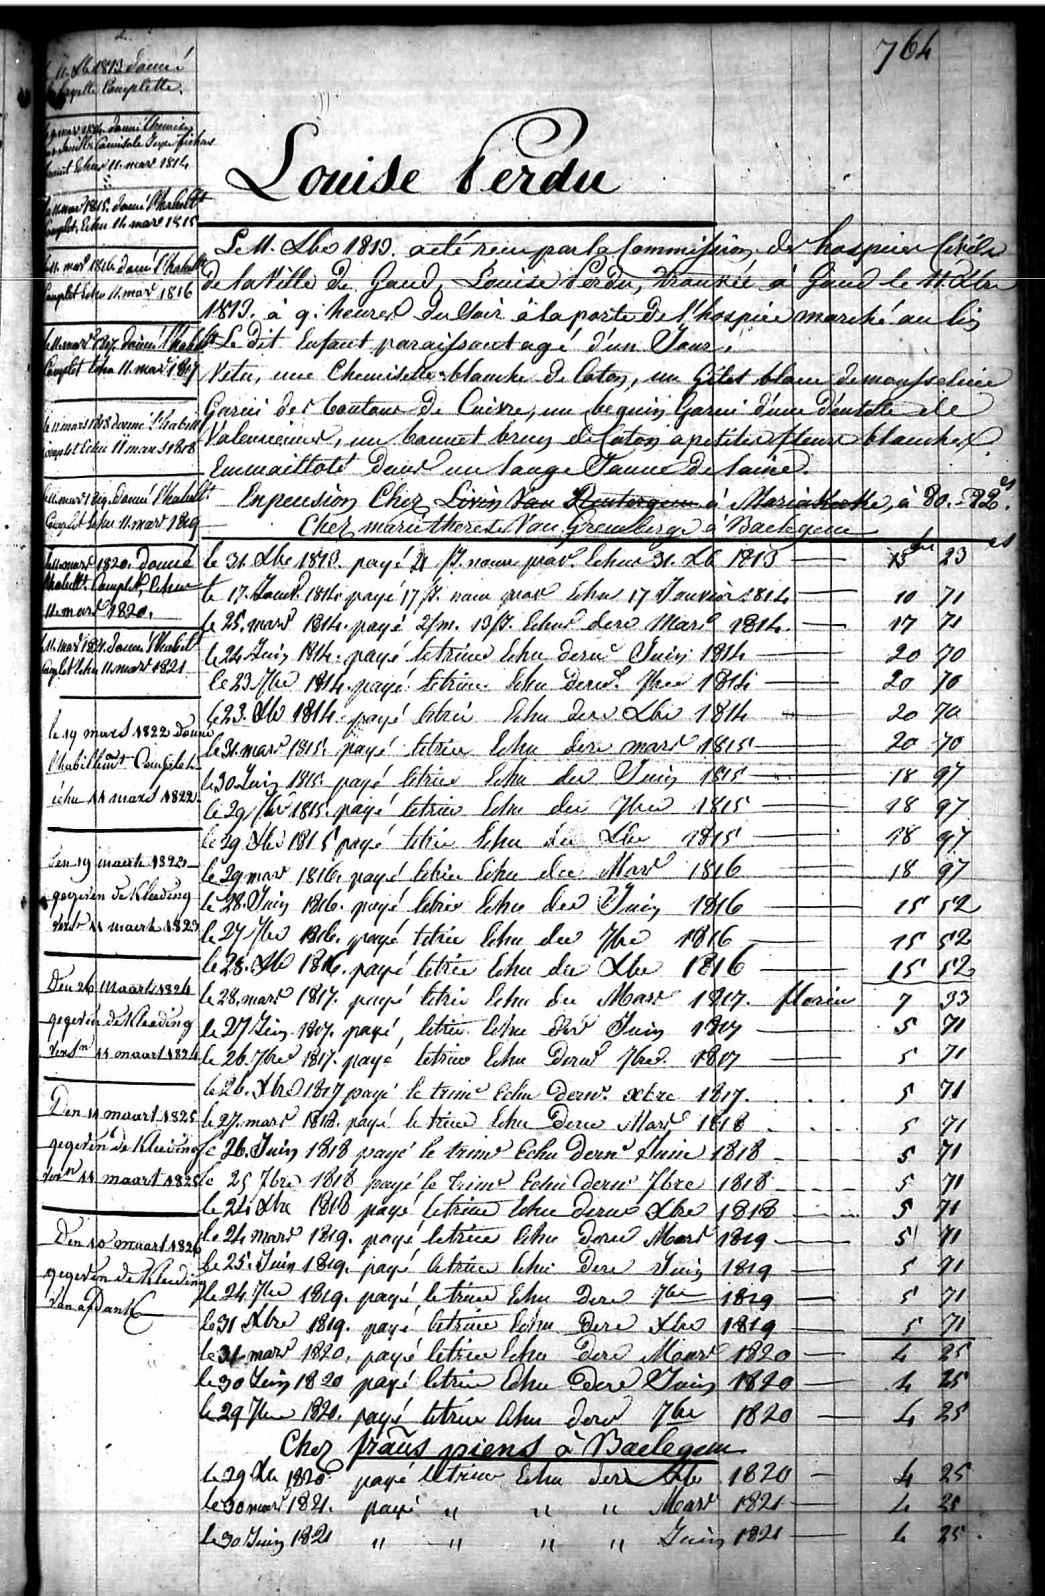 764
Louise Perdu
le 11. Xbre 1813. donné
la layette Complette.
échu 11. mars 1814
le 11. mars 1815. donné l'habill.t
Complet, Echu 11. mars 1815
le 11. mars 1816 donné l'habill.t
Complet Echu 11. mars 1816
le 11. mars 1817. donné l'habill.t
Complet Echu 11. mars 1817
le 11 mars 1818 donné l'habill.t
complet Echu 11 mars 1818
le 11. mars 1819. donné l'habill.t
Complet Echu 11. mars 1819
le 11. mars 1820. donné
l'habill.t Complet, Echu
11. mars 1820.
le 11. mars 1821. donné l'habill.t
Complet Echu 11. mars 1821
le 19 mars 1822 donné
l'habillem.t Complet
échu 11 mars 1822
den 19 maert 1823
gegeven de Kleeding
verv.n 11 maert 1823
Den 26 Maart 1824
gegeven de Kleeding
verv.n 11 maart 1824
Den 11 maart 1825
gegeven de Kleeding
verv.n 11 maart 1825
Den 10 maart 1826
gegeven de Kleeding
Le 11. Xbre 1813. a été reçu par la Commission des hospices Civils
de la Ville de Gand, Louise Perdu, trouvée à Gand le 11. Xbre
1813. à 9. heures du soir à la porte de l'hospice marché au lin
Le dit Enfant paraissant agé d'un Jour.
Vetu, une Chemisette blanche de Coton, un Gilet blanc de mousseline
Garni de boutons de Cuivre, un beguin Garni d'une dentelle de
Valenciennes, un bonnet brun de Coton a petites fleurs blanches.
Emmailloté dans un lange Jaune de laine.
En pension Chez Livin Van à Mariakerke, à 80.-82 cs.
Chez marie therese Van Gremberge à Baelegem
le 31. Xbre 1813. payé 21 Js. nour. prov. Echus 31. Xb 1813 — 13 23
le 17. Janv. 1814. payé 17 Js. nour prov Echu 17 Janvier 1814 — 10 71
le 25. mars 1814. payé 2/m. 13/J. Echus dern Mars 1814. — 17 71
le 24 Juin 1814. payé le trim Echu dern Juin 1814 — 20 70
le 23 7bre 1814. payé le trim. Echu dern. 7bre 1814 — 20 70
le 23. Xb 1814. payé le trim Echu dern Xbre 1814 — 20 70
le 31. mars 1815. payé le trim Echu dern mars 1815 — 20 70
le 30 Juin 1815. payé le trim Echu der Juin 1815 — 18 97
le 29 7br 1815. payé le trim Echu der 7bre 1815 — 18 97
le 29 Xbr 1815 payé le trim Echu de Xbre 1815 — 18 97
le 29 mars 1816. payé le trim Echu der Mars 1816 — 18 97
le 28. Juin 1816. payé le trim Echu der Juin 1816 — 15 52
le 27 7bre 1816. payé le trim Echu der 7bre 1816 — 15 52
le 28. Xb 1816. payé le trim Echu der Xbre 1816 — 15 52
le 28. mars 1817. payé le trim Echu der Mars 1817. florins 7 33
le 27 Juin 1817. payé, le trim. Echu der Juin 1817 — 5 71
le 26. 7bre 1817. payé le trim Echu dern 7bre. 1817 — 5 71
le 26. Xbre 1817 payé le trim Echu dern. xbre 1817. . . . 5 71
le 27. mars 1818. payé le trim Echu dern Mars 1818 . . . 5 71
le 26. Juin 1818 payé le trim Echu dern Juin 1818 . . . 5 71
le 25 7bre 1818 payé le trim Echu dern 7bre 1818 . . . 5 71
le 24 Xbre 1818 payé le trim Echu dern Xbre 1818 — 5 71
le 24 mars 1819. payé le trim Echu dern Mars 1819 — 5 71
le 25. Juin 1819. payé le trim Echu dern Juin 1819 — 5 71
le 24 7bre 1819. payé le trim Echu dern 7bre 1819 — 5 71
le 31 Xbre 1819. payé le trim Echu dern Xbre 1819 — 5 71
le 31 mars 1820. payé le trim Echu dern Mars 1820 — 4 25
le 30 Juin 1820 payé le trim Echu dern Juin 1820 — 4 25
le 29 7bre 1820. payé le trim Echu dern 7bre 1820 — 4 25
Chez frans piens à Baelegem
le 29 Xb 1820 payé le trim Echu der Xbre 1820 — 4 25
le 30 mars 1821. payé " " " Mars 1821 — 4 25
le 30 Juin 1821 " " " " Juin 1821 — 4 25.